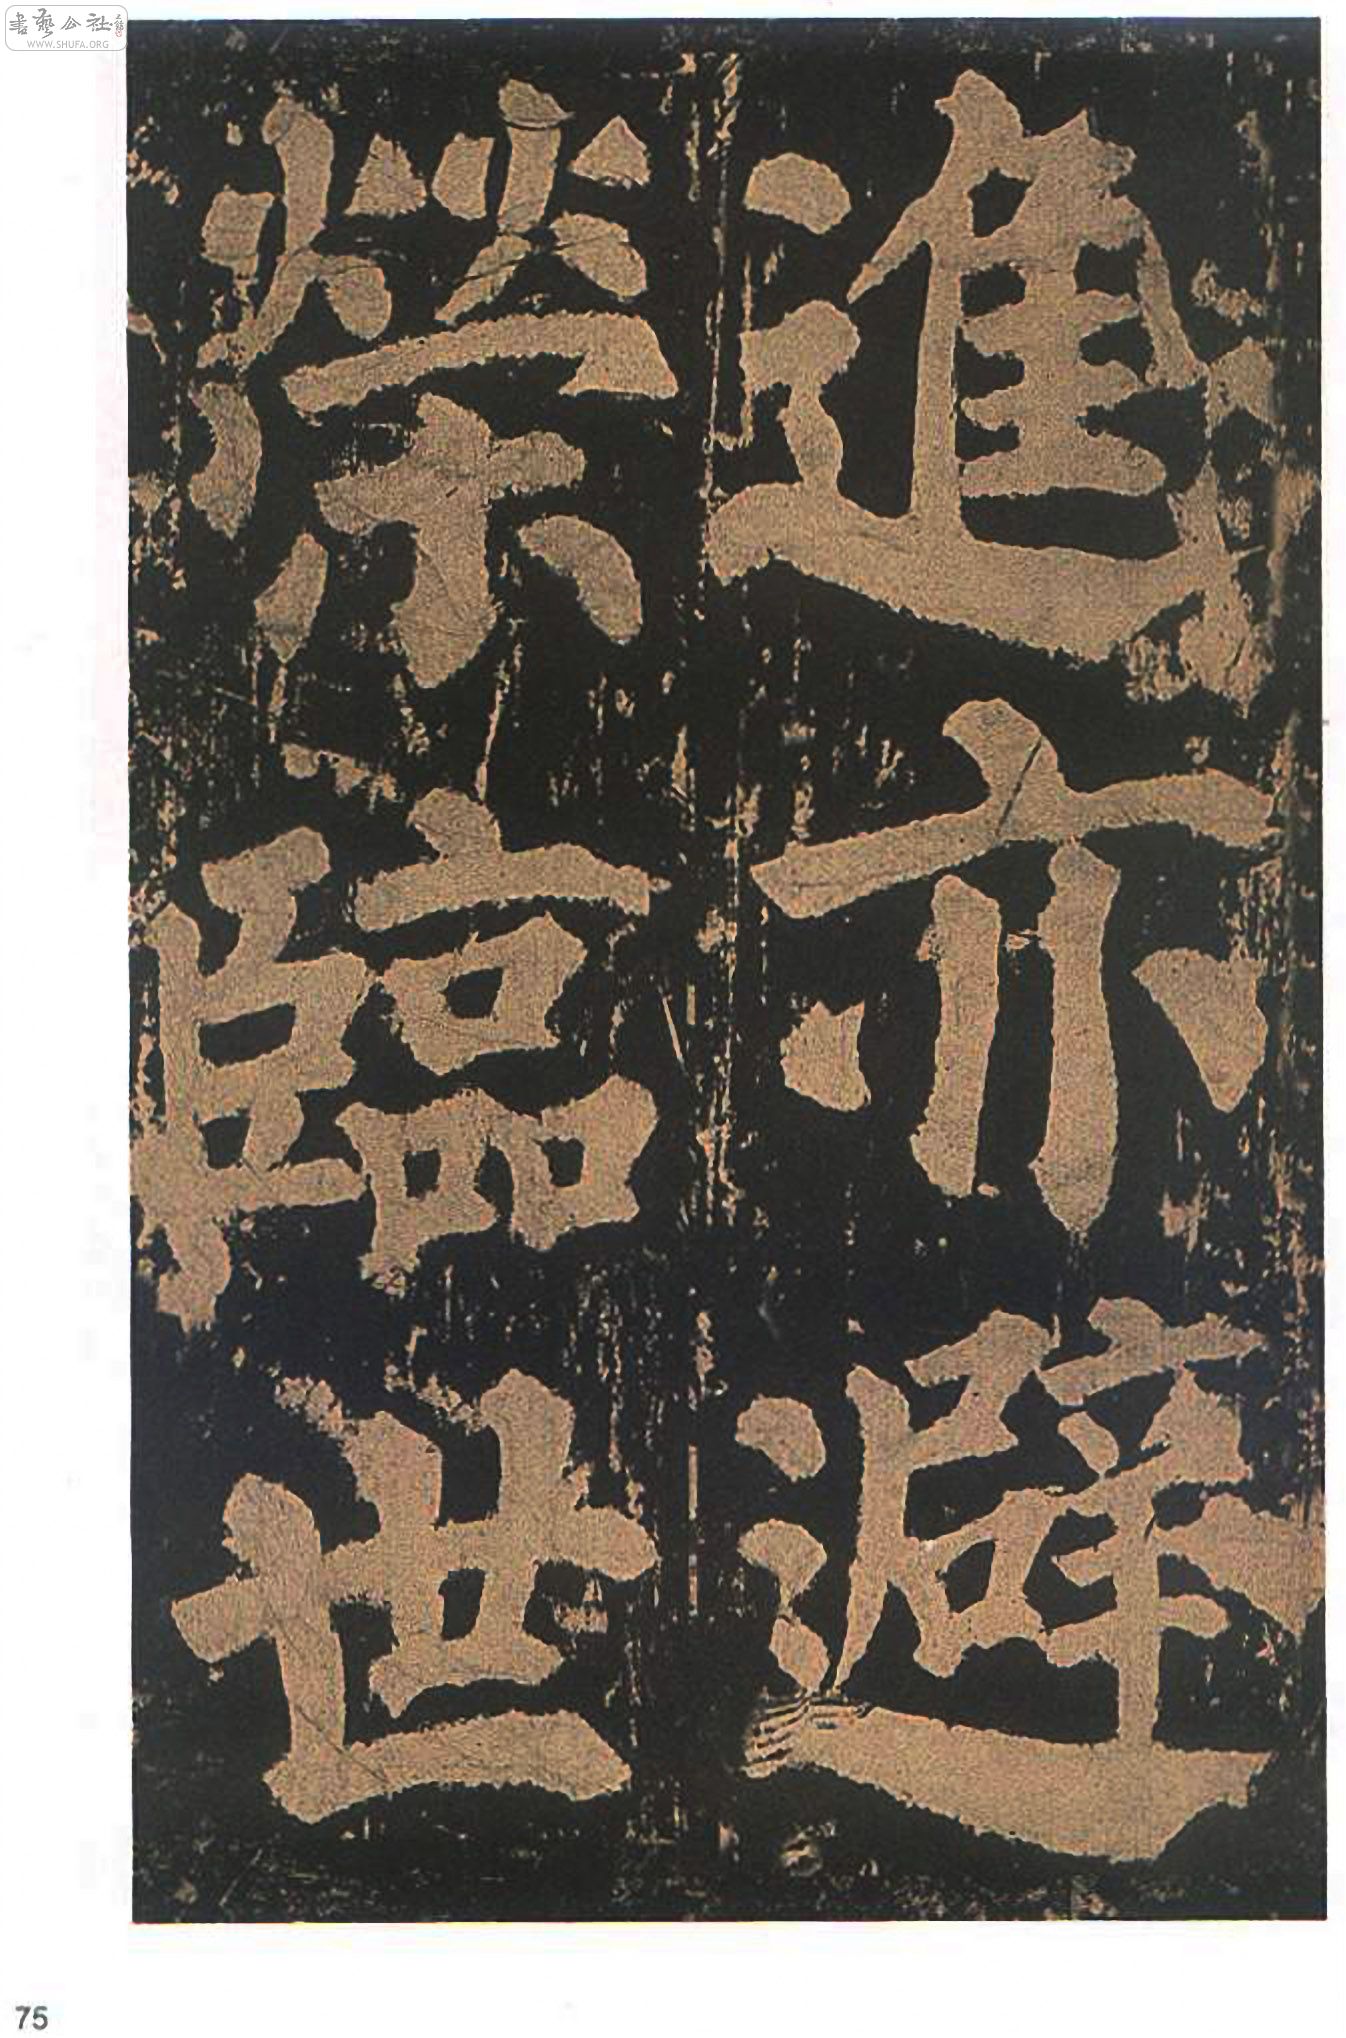 書藝公社
WWW.SHUFA.ORG
進亦避
榮臨世
75